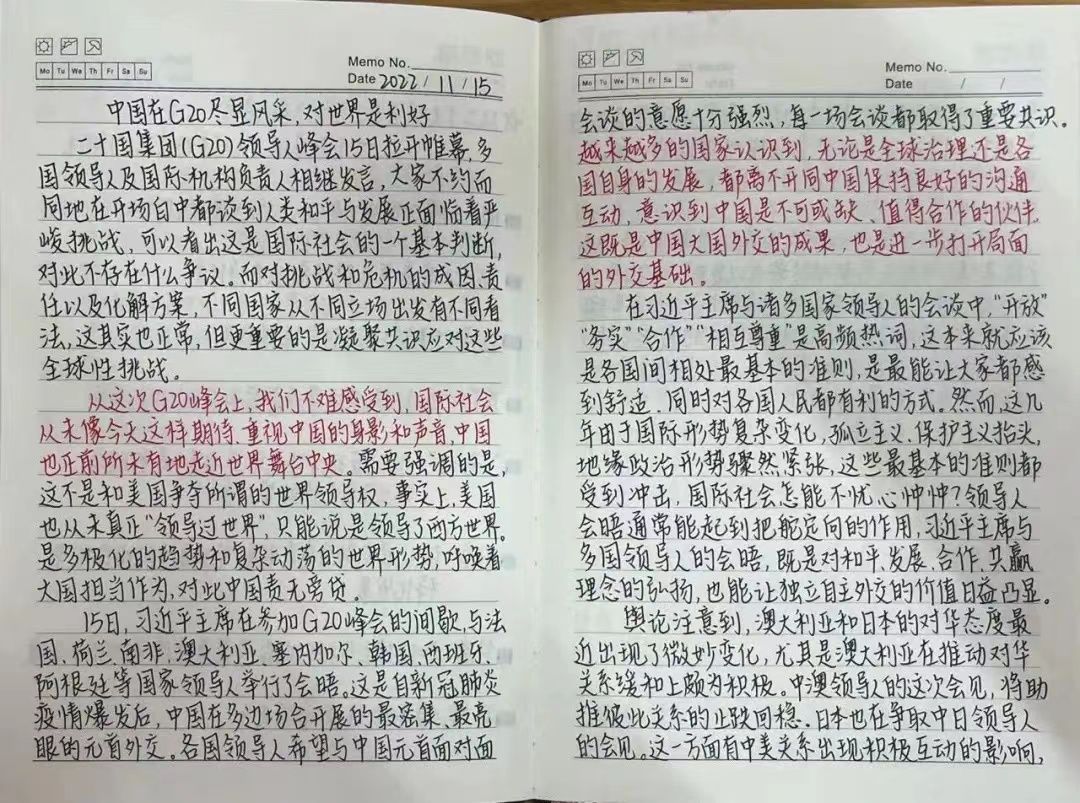 Mo Tu We Th Fr Sa Su
Memo No.
Date 2022/11/15
中国在G20尽显风采，对世界是利好
二十国集团(G20)领导人峰会15日拉开帷幕，多
国领导人及国际机构负责人相继发言，大家不约而
同地在开场白中都谈到人类和平与发展正面临着严
峻挑战，可以看出这是国际社会的一个基本判断，
对此不存在什么争议。而对挑战和危机的成因、责
任以及化解方案，不同国家从不同立场出发有不同看
法，这其实也正常，但更重要的是凝聚共识应对这些
全球性挑战。
从这次G20峰会上，我们不难感受到，国际社会
从未像今天这样期待、重视中国的身影和声音，中国
也正前所未有地走近世界舞台中央。需要强调的是，
这不是和美国争夺所谓的世界领导权，事实上，美国
也从未真正“领导过世界”，只能说是领导了西方世界。
是多极化的趋势和复杂动荡的世界形势，呼唤着
大国担当作为，对此中国责无旁贷。
15日，习近平主席在参加G20峰会的间歇，与法
国、荷兰、南非、澳大利亚、塞内加尔、韩国、西班牙、
阿根廷等国家领导人举行了会晤。这是自新冠肺炎
疫情爆发后，中国在多边场合开展的最密集、最亮
眼的元首外交。各国领导人希望与中国元首面对面
Mo Tu We Th Fr Sa Su
Memo No.
Date / /
会谈的意愿十分强烈，每一场会谈都取得了重要共识。
越来越多的国家认识到，无论是全球治理还是各
国自身的发展，都离不开同中国保持良好的沟通
互动，意识到中国是不可或缺、值得合作的伙伴。
这既是中国大国外交的成果，也是进一步打开局面
的外交基础。
在习近平主席与诸多国家领导人的会谈中，“开放”
“务实”“合作”“相互尊重”是高频热词，这本来就应该
是各国间相处最基本的准则，是最能让大家都感
到舒适、同时对各国人民都有利的方式。然而，这几
年由于国际形势复杂变化，孤立主义、保护主义抬头，
地缘政治形势骤然紧张，这些最基本的准则都
受到冲击，国际社会怎能不忧心忡忡？领导人
会晤通常能起到把舵定向的作用，习近平主席与
多国领导人的会晤，既是对和平、发展、合作、共赢
理念的弘扬，也能让独立自主外交的价值日益凸显。
舆论注意到，澳大利亚和日本的对华态度最
近出现了微妙变化，尤其是澳大利亚在推动对华
关系缓和上颇为积极。中澳领导人的这次会见，将助
推彼此关系的止跌回稳。日本也在争取中日领导人
的会见。这一方面有中美关系出现积极互动的影响，